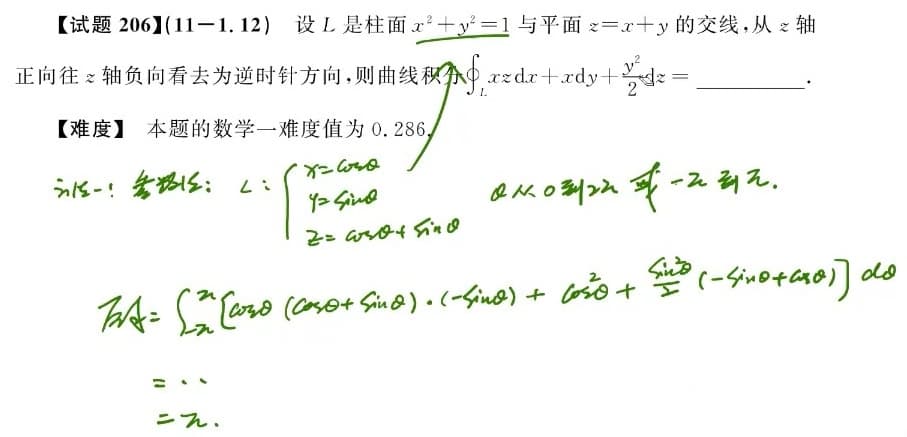 【试题 206】(11－1.12) 设 L 是柱面 x²+y²=1 与平面 z=x+y 的交线,从 z 轴
正向往 z 轴负向看去为逆时针方向,则曲线积分∮_L xzdx+xdy+y²/2 dz= ________.
【难度】 本题的数学一难度值为 0.286.
方法一: 参数法: L: { x=cosθ
y=sinθ θ从0到2π 或 -π到π.
z=cosθ+sinθ
原式=∫_{-π}^{π}[cosθ(cosθ+sinθ)·(-sinθ)+cos²θ+sin²θ/2(-sinθ+cosθ)]dθ
=··
=π.